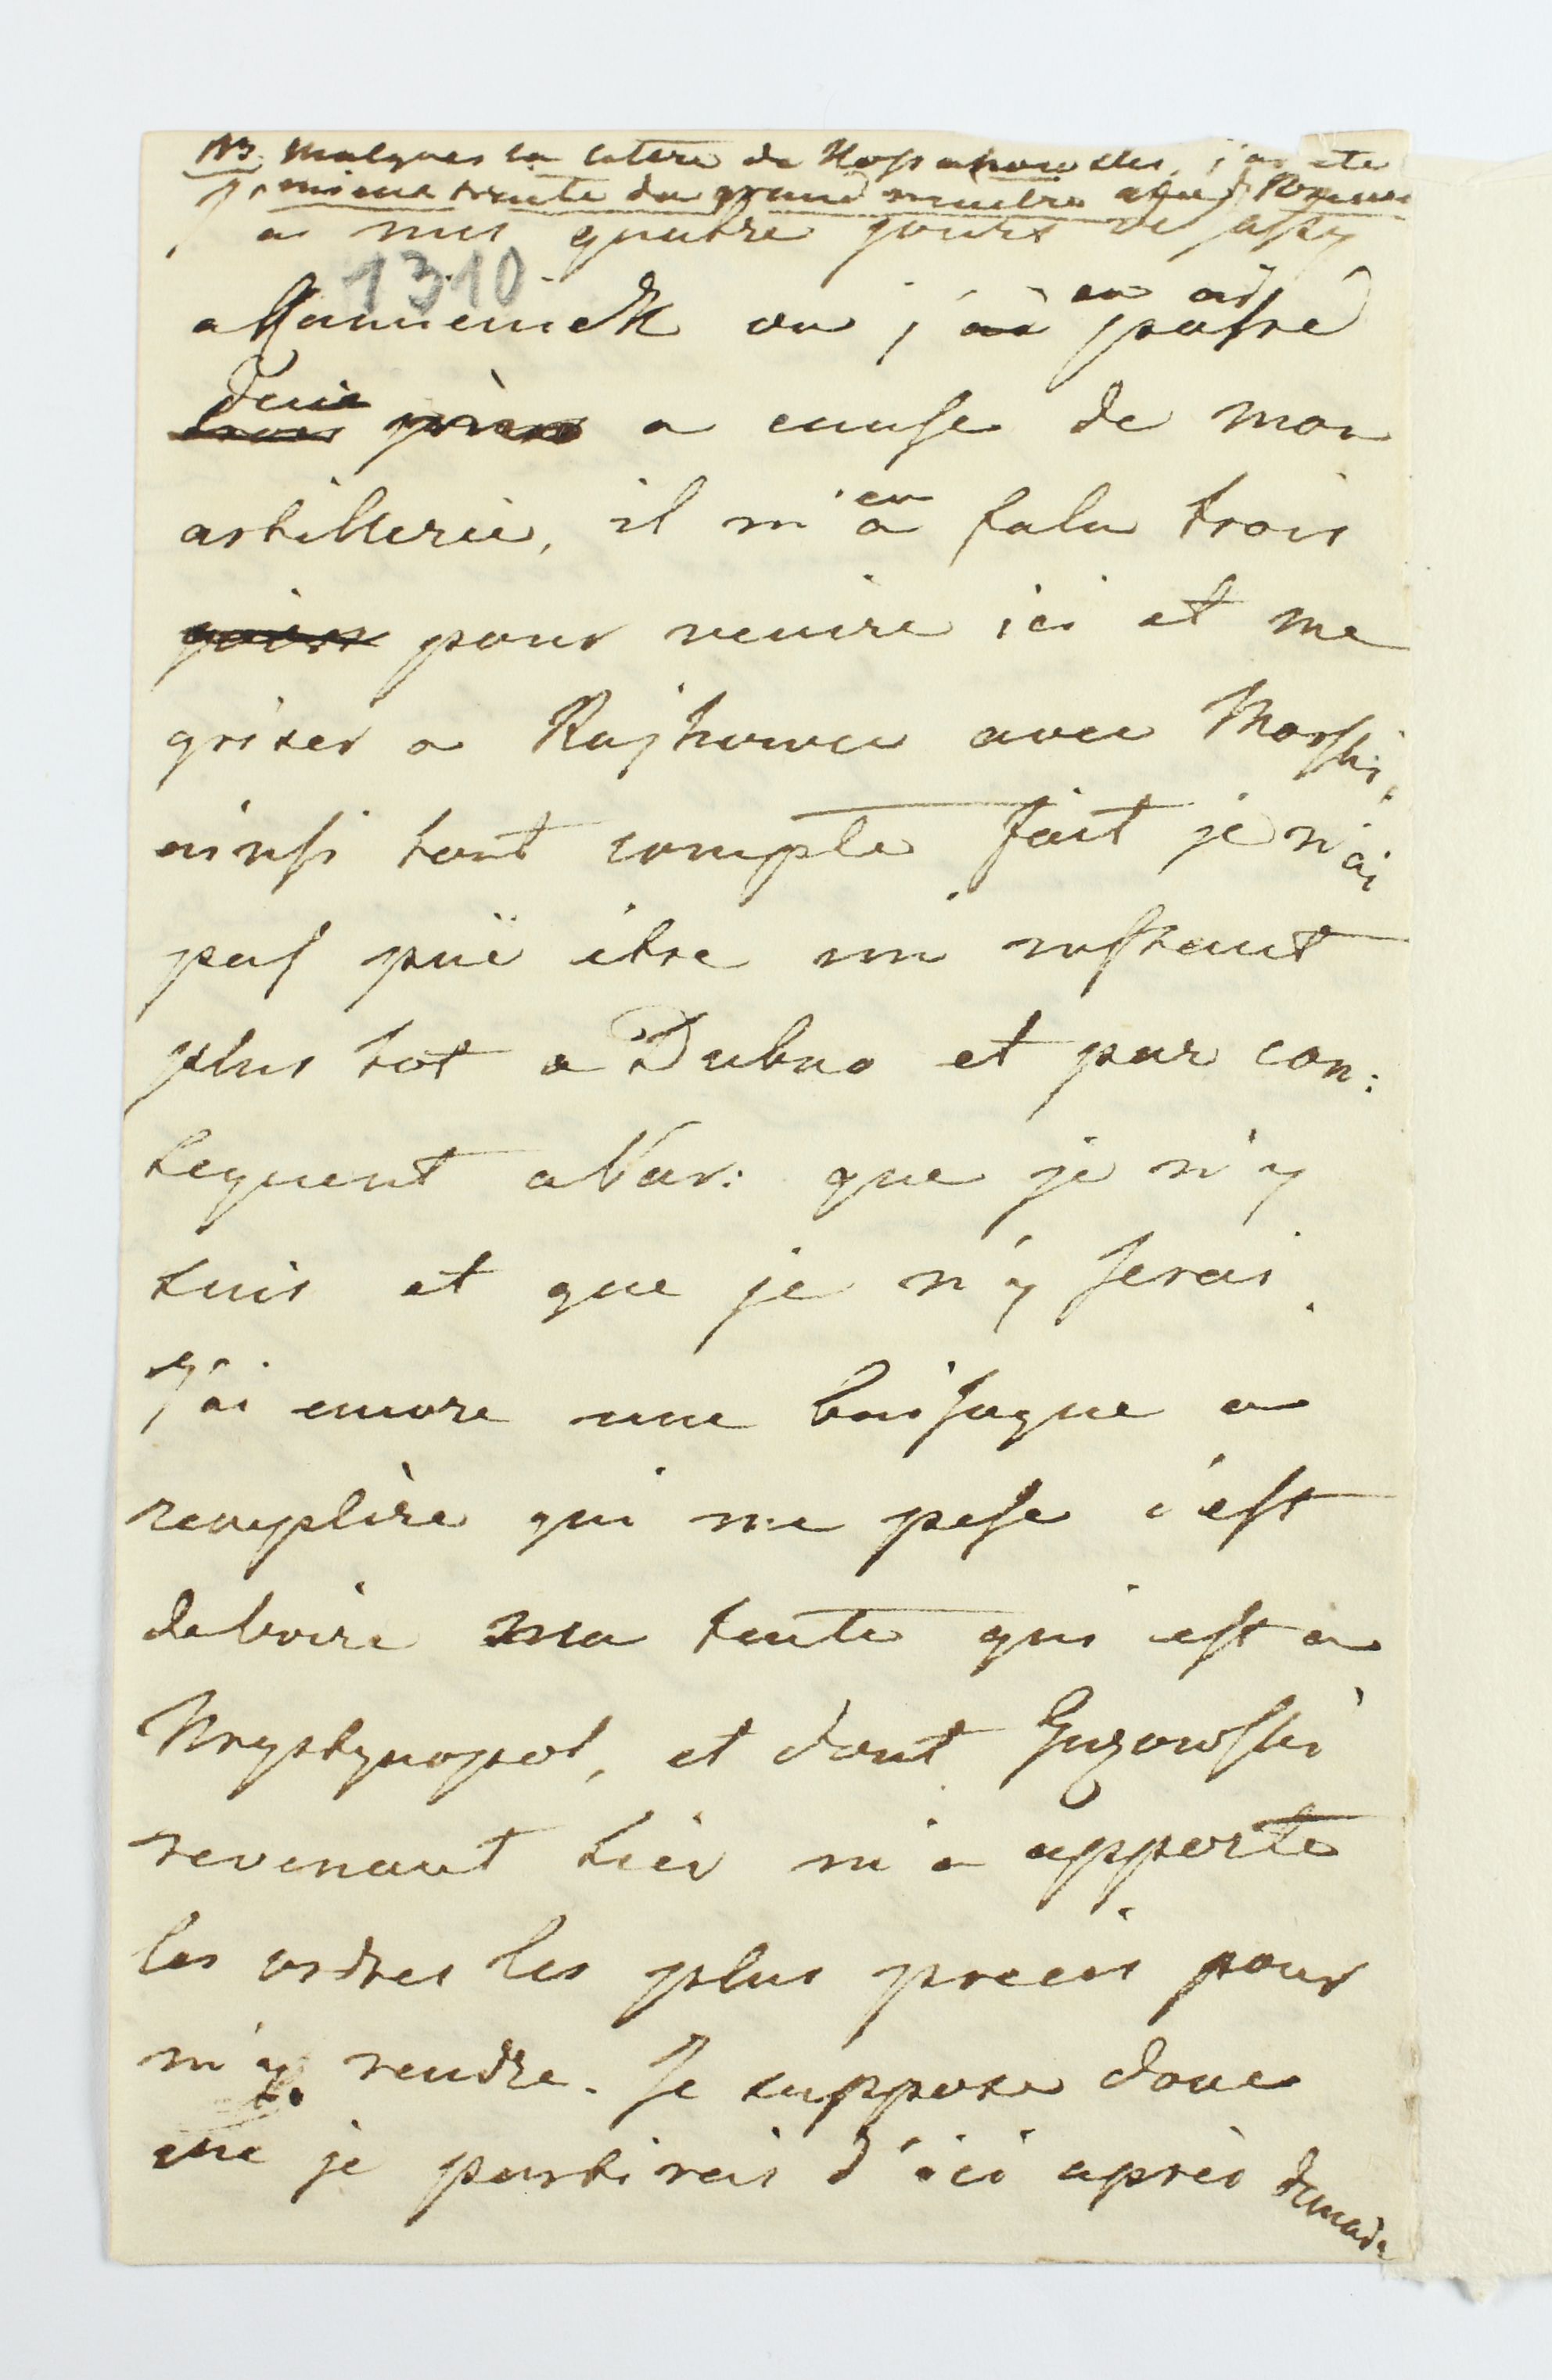 NB. Malgres la letere de j'ai ete
mieux traite du grand
J'ai mis quatre jours de Jassy
1310
a Kamieniek ou j'en ai passé
deux a cause de mon
artillerie, il m'en a falu trois
pour venire ici et me
griser a avec Morski,
ainsi tout compte fait je n'ai
pas puë être un instant
plus tot a Dubno et par con:
sequent a Var: que je n'y
suis et que je n'y serai.
J'ai encore une a
remplire qui me pese c'est
de voire ma tente qui est a
Krystynopol, et dont Guzowski
revenant hier m'a apporte
les ordres les plus precis pour
m'y rendre. Je suppose donc
que je partirais d'ici après demain